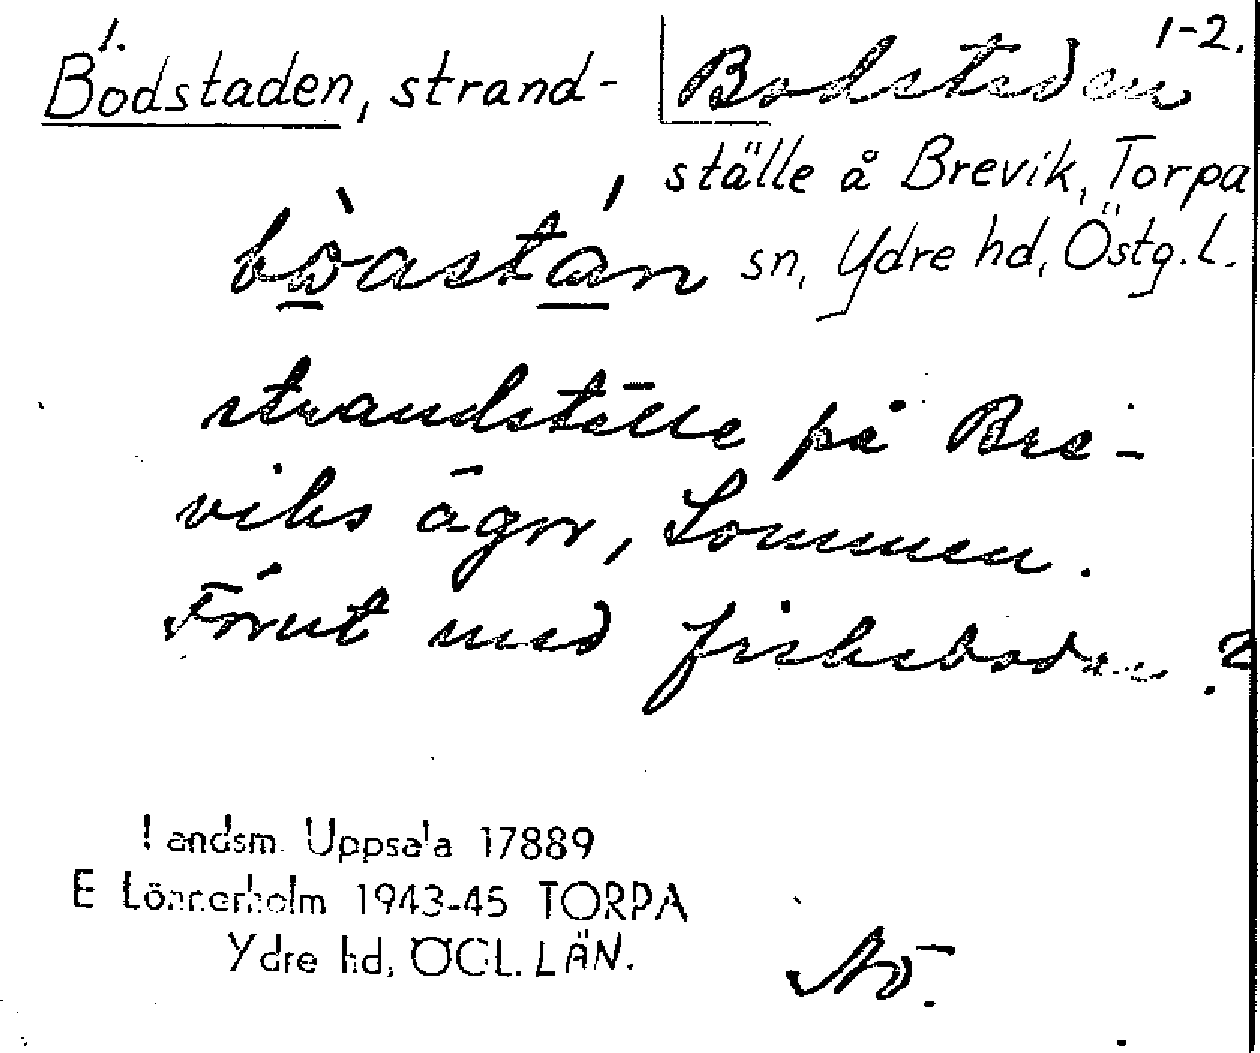 1. 1-2.
Bodstaden, strand- Bodstaden
ställe å Brevik, Torpa
sn, Ydre hd, Östg. L.
strandställe på Bre-
viks ägor, Sommen.
Förut med fiskebodar.
Landsm. Uppsala 17889
E Lönnerholm 1943-45 TORPA
Ydre hd, ÖGL. LÄN.
NO.